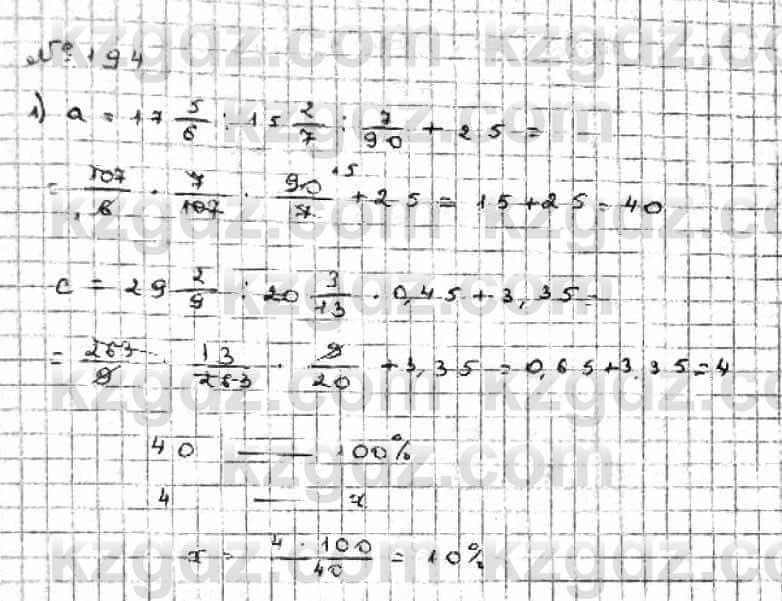 № 194
1) a = 17 5/6 : 15 2/7 : 7/90 + 25 =
= 107/6 · 7/107 · 90/7 15 + 25 = 15 + 25 = 40
c = 29 2/9 : 20 3/13 · 0,45 + 3,35 =
= 263/9 · 13/263 · 9/20 + 3,35 = 0,65 + 3,35 = 4
40 — 100%
4 — x
x = 4 · 100/40 = 10%
kzgdz.com